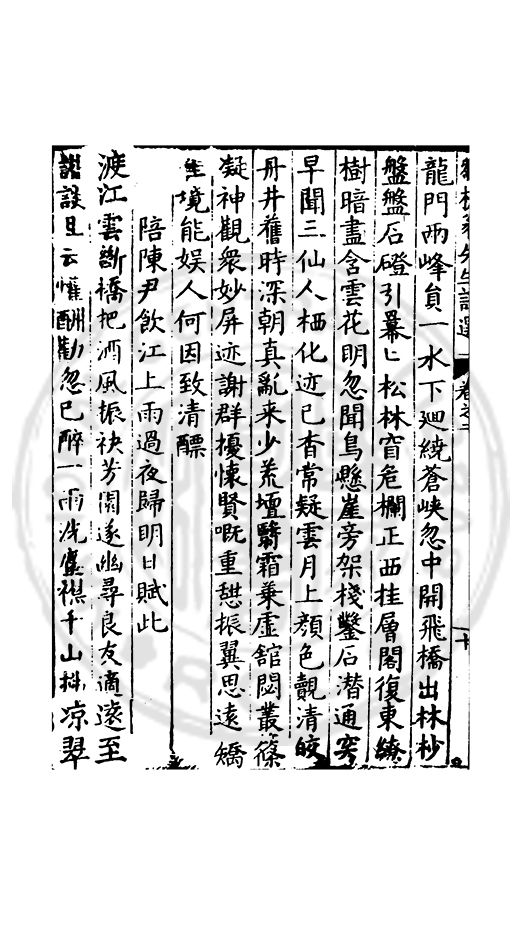 龍門兩峰負一水下廻繞蒼峽忽中開飛橋出林杪
盤盤石磴引冪匕松林窅危欄正西挂層閣復東繚
樹暗盡含雲花明忽聞鳥懸崖旁架棧鑿石潜通窔
早聞三仙人栖化迹已杳常疑雲月上顔色覿清皎
丹井舊時深朝真亂来少荒壇翳霜葉虚舘閟叢篠
凝神觀衆妙屏迹謝群擾懷賢嘅重趆振翼思遠矯
境能娱人何因致清醥
陪陳尹飲江上雨過夜歸明日賦此
渡江雲斷橋把酒風振袂芳園遂幽尋良友適遠至
談且云懽酬勸忽已醉一雨洗塵襟千山抖凉翠
卷之一
十